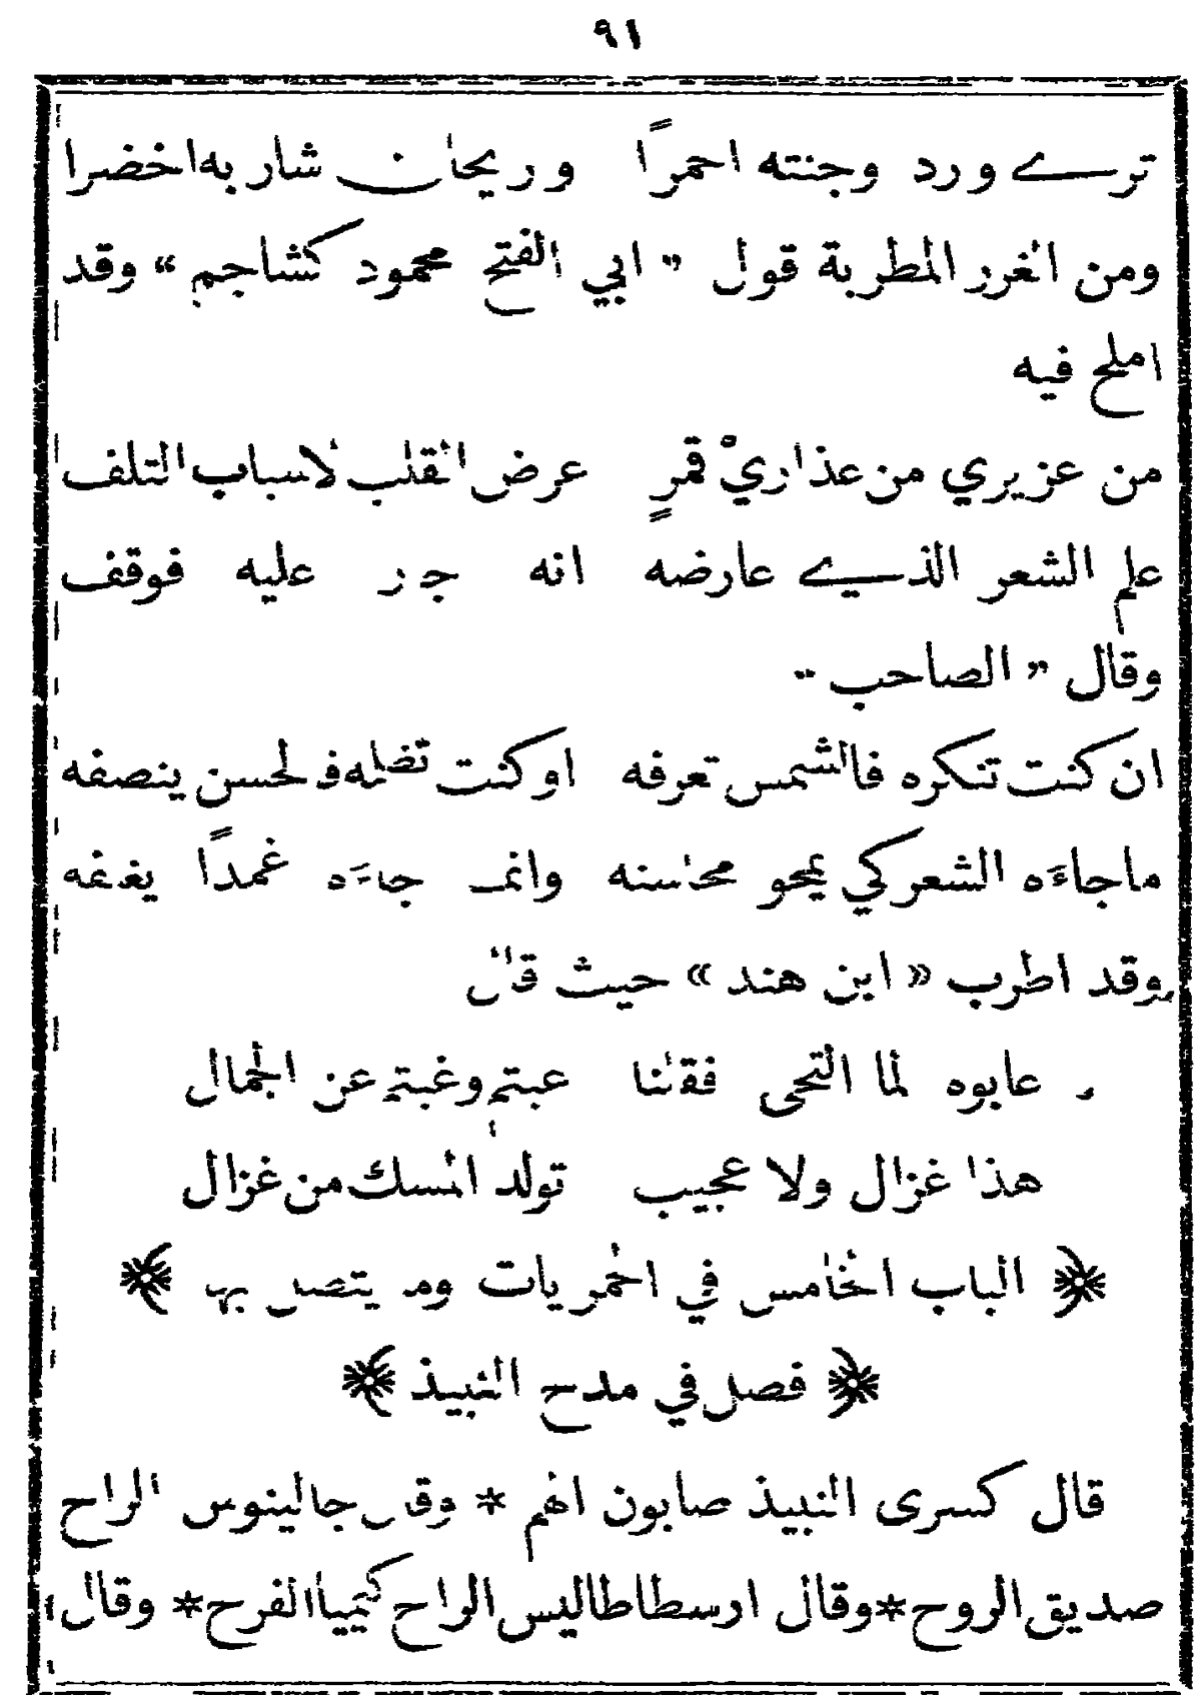 ٩١
ترے ورد وجنته احمرًا وريحان شاربه اخضرا
ومن الغرر المطربة قول « ابي الفتح محمود كشاجم » وقد
املح فيه
من عزيري من عذاريْ قمرٍ عرض القلب لاسباب التلف
علم الشعر الذيے عارضه انه جار عليه فوقف
وقال « الصاحب »
ان كنت تنكره فالشمس تعرفه او كنت تظلمه فالحسن ينصفه
ماجاءَه الشعر كي يمحو محاسنه وانما جاءَه غمدًا يغلفه
وقد اطرب « ابن هند » حيث قال
عابوه لما التحى فقلنا عبتم وغبتم عن الجمال
هذا غزال ولا عجيب تولد المسك من غزال
﴿ الباب الخامس في الخمريات وما يتصل بها ﴾
﴿ فصل في مدح النبيذ ﴾
قال كسرى النبيذ صابون الهم * وقال جالينوس الراح
صديق الروح * وقال ارسطاطاليس الراح كيمياالفرح * وقال